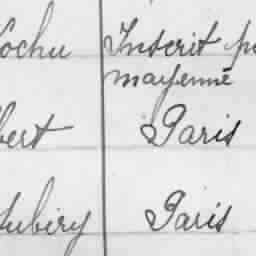 ochu Inscrit p
mayenne
bert Paris
ubiry Paris